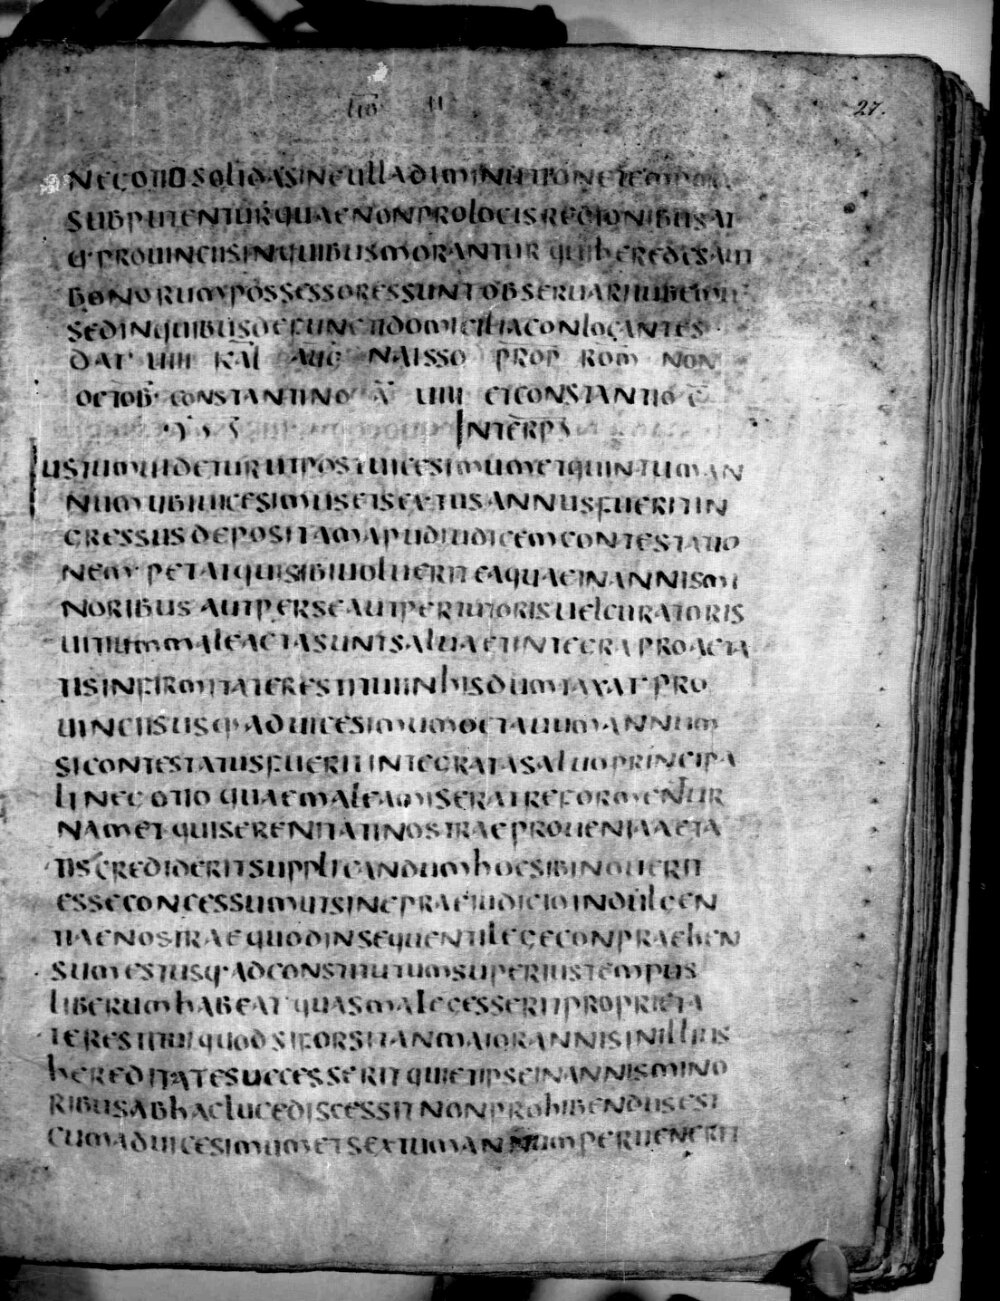 LIB II 27.
NEGOTIO SOLIDA SINE ULLA DIMINUTIONE TEMPORA
SUBPUTENTUR QUAE NON PRO LOCIS REGIONIBUS AT
Q· PROUINCIIS IN QUIBUS MORANTUR QUI HEREDES AUT
BONORUM POSSESSORES SUNT OBSERUARI IUBEMUS
SED IN QUIBUS DEFUNCTI DOMICILIA CONLOCANTES·
DAT· UIII KAL AUG NAISSO PROP ROM NON
OCTOB· CONSTANTINO A UIII ET CONSTANTIO C
INTERP
IUSTUM UIDETUR UT POST UICESIMUM ET QUINTUM AN
NUM UBI UICESIMUS ET SEXTUS ANNUS FUERIT IN
GRESSUS DEPOSITAM APUD IUDICEM CONTESTATIO
NEM· PETAT QUI SIBI UOLUERIT EA QUAE IN ANNIS MI
NORIBUS AUT PER SE AUT PER TUTORIS UEL CURATORIS
UITIUM MALE ACTA SUNT SALUA ET INTEGRA PRO AETA
TIS INFIRMITATE RESTITUI IN HIS DUMTAXAT· PRO
UINCIIS USQ· AD UICESIMUM OCTAUUM ANNUM
SI CONTESTATUS FUERIT INTEGRATA SALUO PRINCIPA
LI NEGOTIO QUAE MALE AMISERAT REFORMENTUR
NAM ET QUI SERENITATI NOSTRAE PRO UENIA AETA
TIS CREDIDERIT SUPPLICANDUM HOC SIBI NOUERIT
ESSE CONCESSUM UT SINE PRAEIUDICIO INDULGEN
TIAE NOSTRAE QUOD IN SEQUENTI LEGE CONPRAEHEN
SUM EST USQ· AD CONSTITUTUM SUPERIUS TEMPUS
LIBERUM HABEAT QUAS MALE GESSERIT PROPRIETA
TE RESTITUI QUOD SI FORSITAN MAIOR ANNIS IN ILLIUS
HEREDITATE SUCCESSERIT QUI ET IPSE IN ANNIS MINO
RIBUS AB HAC LUCE DISCESSIT NON PROHIBENDUS EST
CUM AD UICESIMUM ET SEXTUM ANNUM PERUENERIT